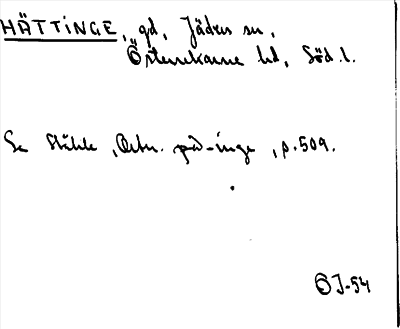 HÄTTINGE, gd, Jäders sn,
Österrekarne hd, Söd. l.
Se Ståhle, Ortn. på -inge, p. 509.
ÖJ-54